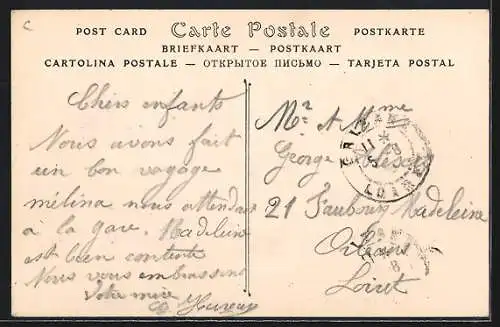 c
POST CARD Carte Postale POSTKARTE
BRIEFKAART — POSTKAART
CARTOLINA POSTALE — ОТКРЫТОЕ ПИСЬМО — TARJETA POSTAL
Chers enfants
Nous avons fait
un bon voyage
mélina nous attendait
à la gare. Madeleine
est bien contente
Nous vous embrassons
Votre mère
Mr et Mme
George
21 Faubourg Madeleine
Orléans
Loiret